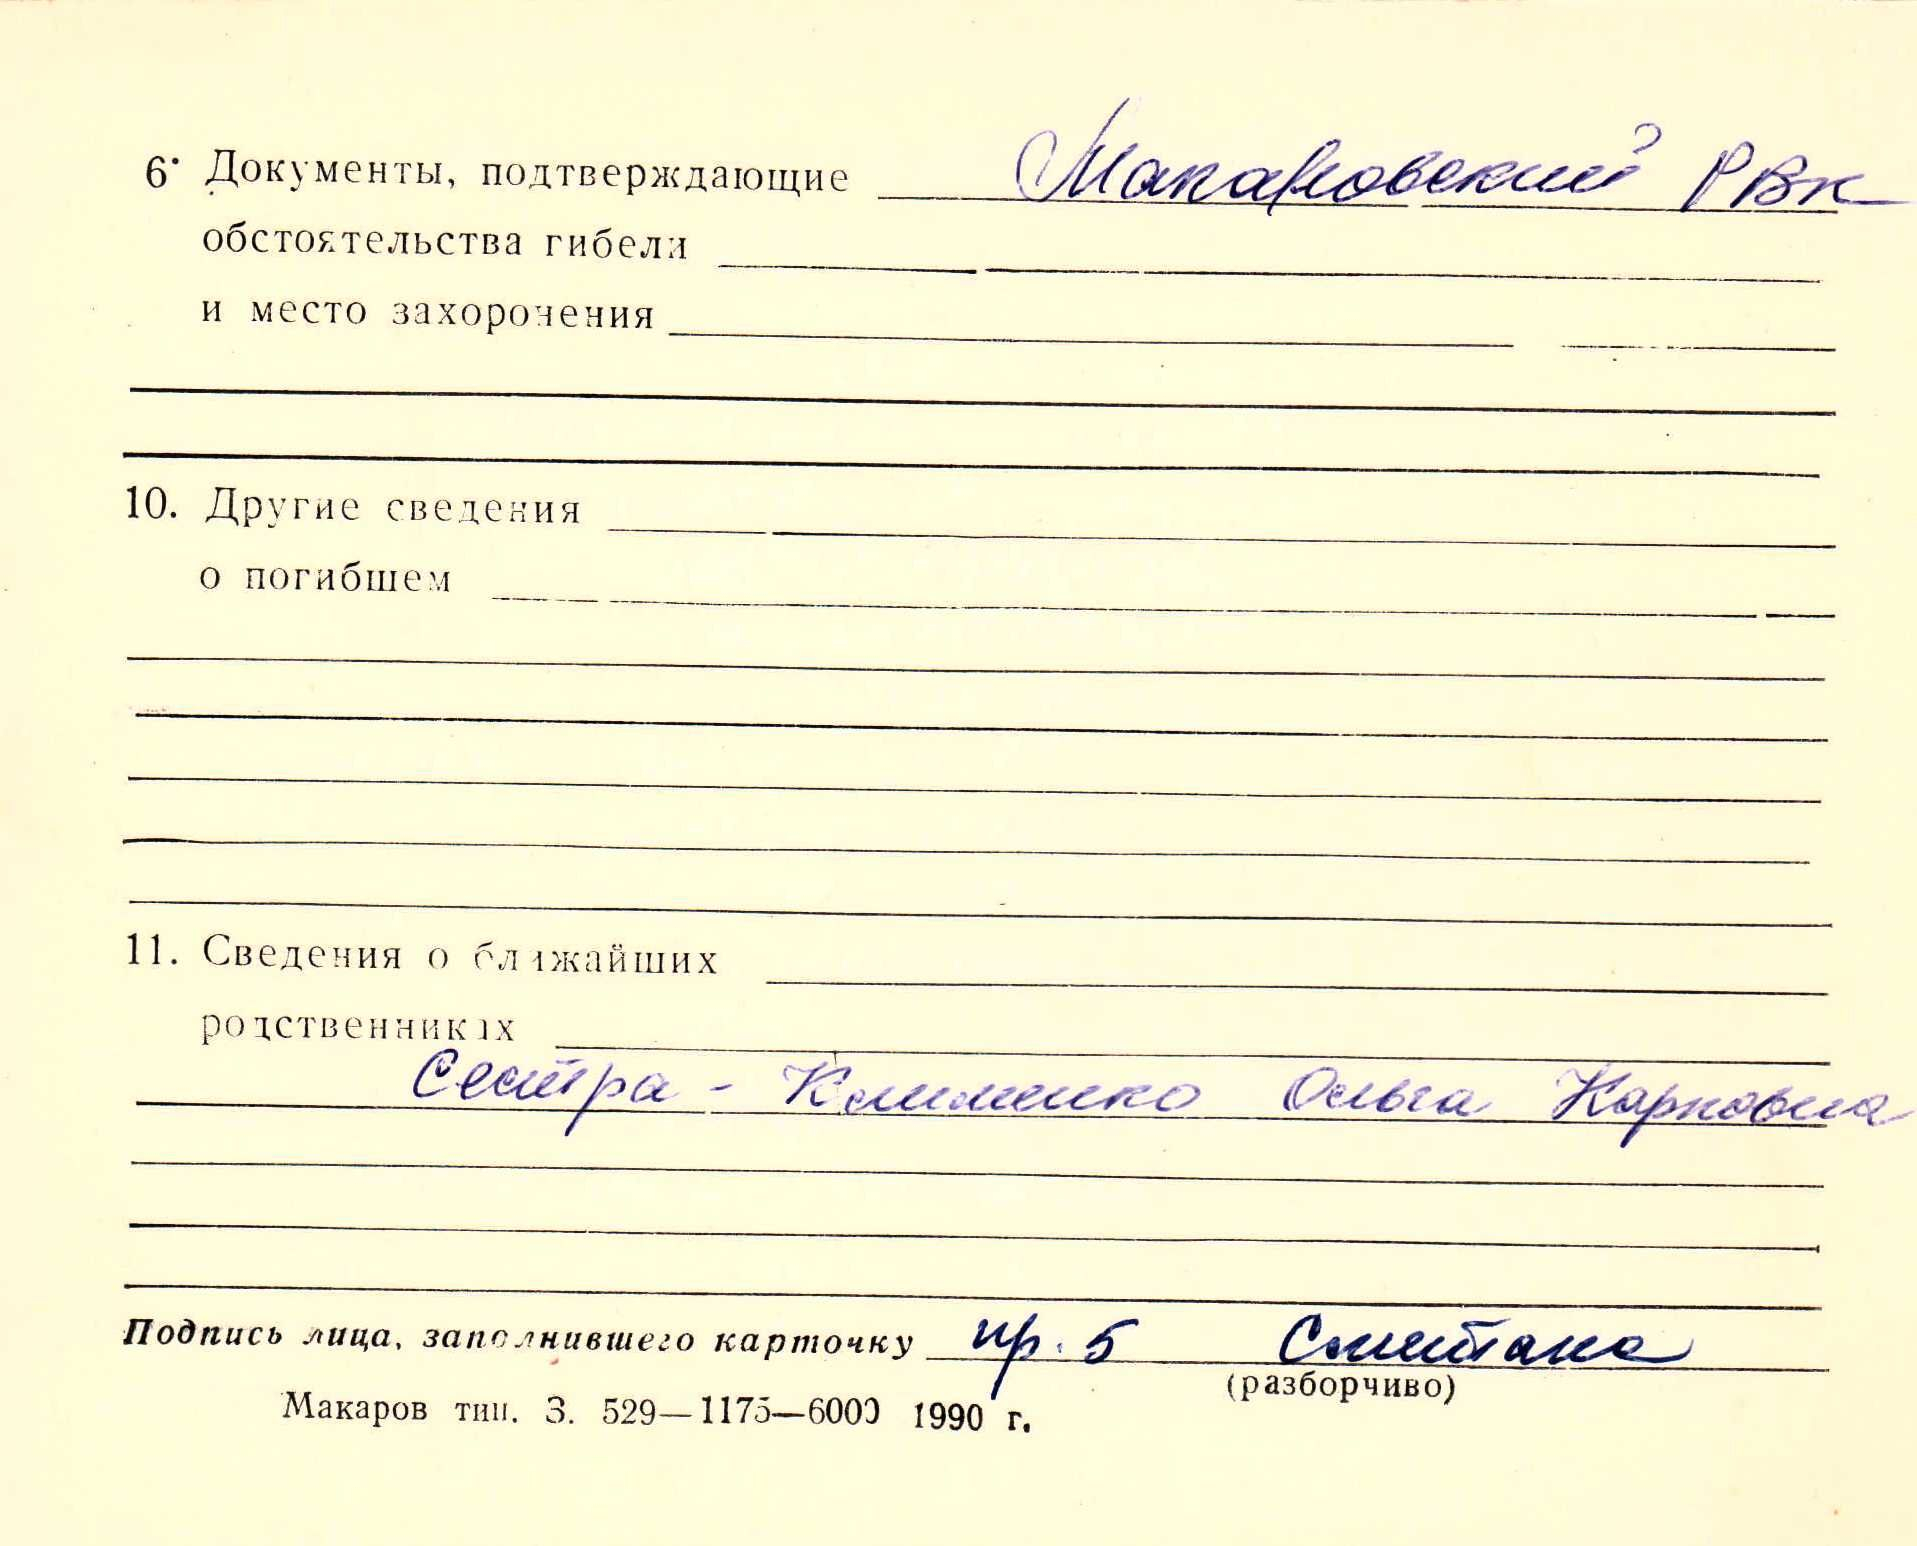 6. Документы, подтверждающие Макаровский РВК
обстоятельства гибели
и место захоронения
10. Другие сведения
о погибшем
11. Сведения о ближайших
родственниках
Сестра - Клименко Ольга Карповна
Подпись лица, заполнившего карточку пр. 5 Сметана
(разборчиво)
Макаров тип. З. 529—1175—6000 1990 г.